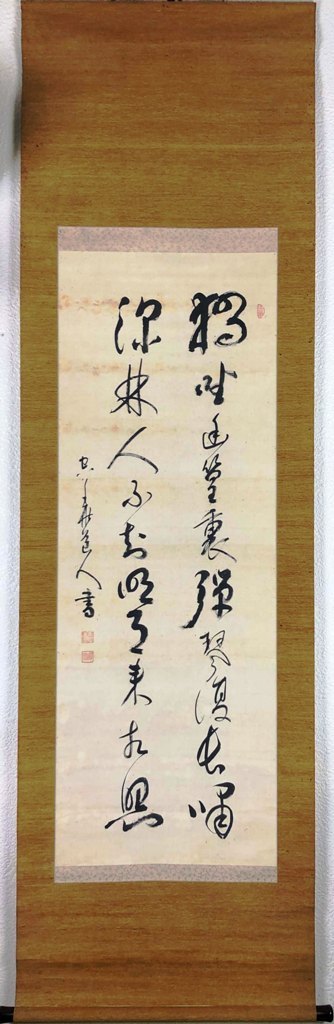 獨坐幽篁裏彈琴復長嘯
深林人不知明月来相照
道人書